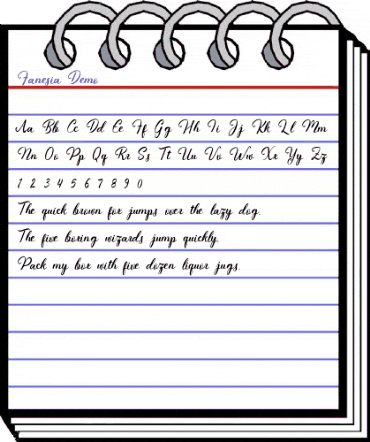 Fanesia Demo
Aa Bb Cc Dd Ee Ff Gg Hh Ii Jj Kk Ll Mm
Nn Oo Pp Qq Rr Ss Tt Uu Vv Ww Xx Yy Zz
1 2 3 4 5 6 7 8 9 0
The quick brown fox jumps over the lazy dog.
The five boxing wizards jump quickly.
Pack my box with five dozen liquor jugs.